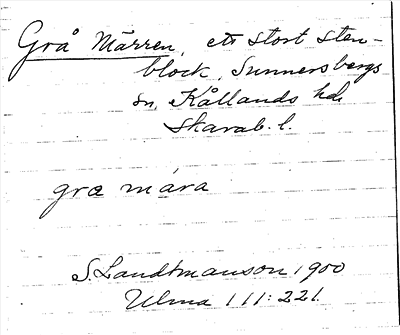 Grå Märren, ett stort sten-
block, Sunnersbergs
sn, Kållands hd,
Skarab. l.
græ mára
S. Landtmanson 1900
Ulma 111:221.